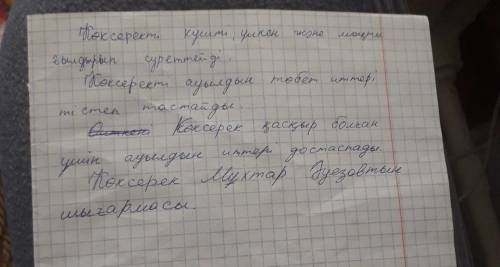 Көксеректі күшті, үлкен және мықты
қылдырып суреттейді.
Көксеректі ауылдың төбет иттері
тістеп тастайды.
Көксерек қасқыр болған
үшін ауылдың иттер достаспады.
Көксерек Мұхтар Әуезовтың
шығармасы.